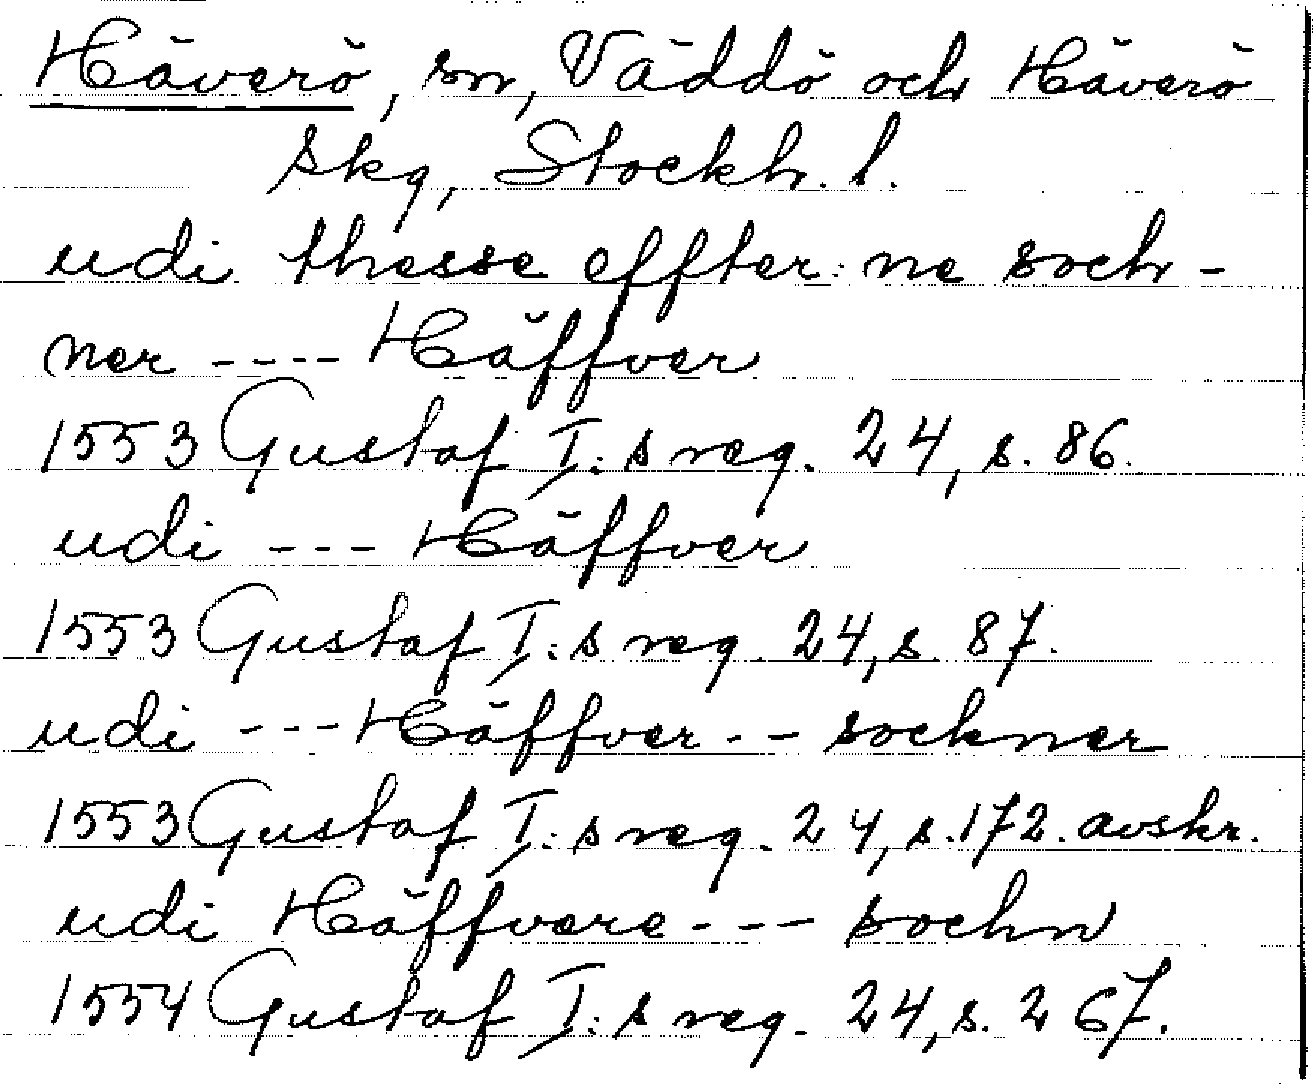 Häverö, sn, Väddö och Häverö
skg, Stockh. l.
udi thesse effter:ne soch-
ner ---- Häffver
1553 Gustaf I:s reg. 24, s. 86.
udi --- Häffver
1553 Gustaf I:s reg. 24, s. 87.
udi --- Häffver -- sockner
1553 Gustaf I:s reg. 24, s. 172. avskr.
udi Häffvere --- sochn
1554 Gustaf I:s reg. 24, s. 267.